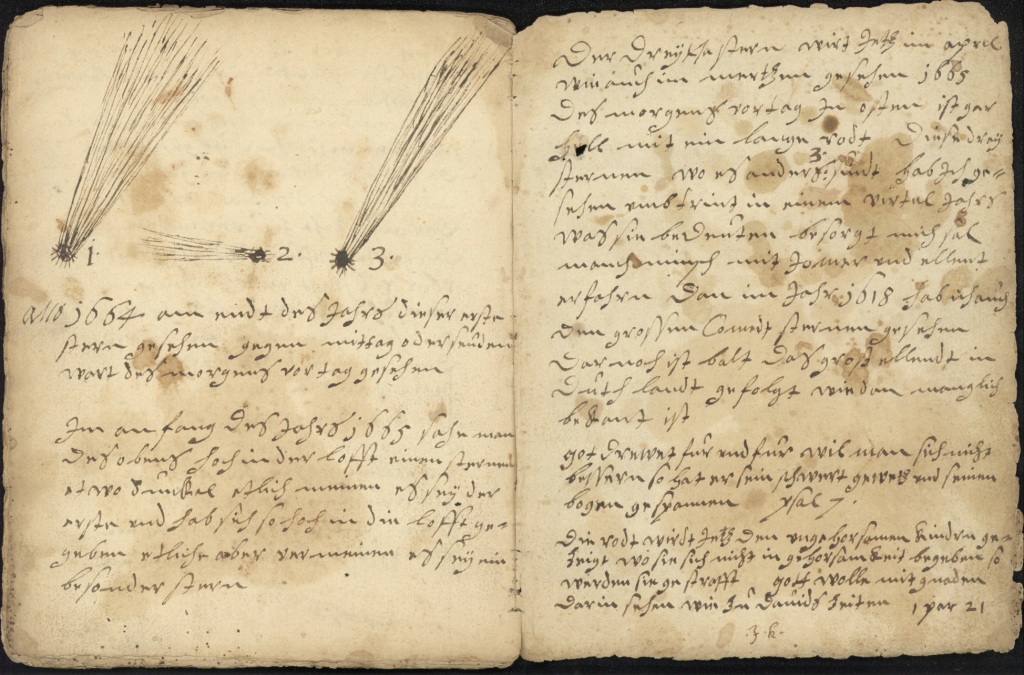 1.
2.
3.
Ao 1664 am endt des Jahrs dieser erste
stern gesehen gegen mittag oder seuden
wart des morgens vor tag gesehen
Im anfang des Jahrs 1665 sahe man
des obens hoch in der lofft einen sternen
etwo dunckel etlich meinen es sey der
erste und hab sich so hoch in die lofft ge=
geben etliche aber vermeinen es sey ein
besonder stern
Der Dreytha stern wirt Jetz im april
wie auch im mertzen gesehen 1665
des morgens vor tag In osten ist gar
hell mit ein lange rodt Diese drey
sternen wo es anders 3. sundt hab Ich ge=
sehen umb trint in einem virtel Jahrs
was sie bedeuten besorgt mich sal
manch minsch mit Jomer und ellent
erfahrn Dan im Jahr 1618 hab ich auch
den grossen Comet sternen gesehen
Dar noch ist balt das gross ellendt in
Dutch landt gefolgt wie dan manglich
bekant ist
got drewet fur und fur wil man sich nicht
bessern so hat er sein schwert gewetz und seinen
bogen gespannen psal 7.
Die rodt wirdt Jetz den ungehorsamen kindrn ge=
zeigt wo sie sich nicht in gehorsamkeit begeben so
werden sie gestrafft gott wolle mit gnaden
darin sehen wie zu Davids zeiten 1 par 21